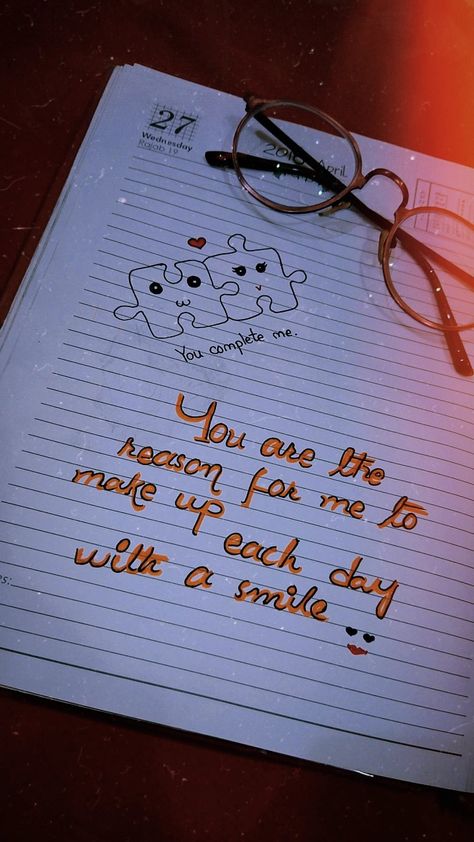 27
Wednesday
Rajab 19
April
You complete me.
You are the
reason for me to
make up each day
with a smile
es: